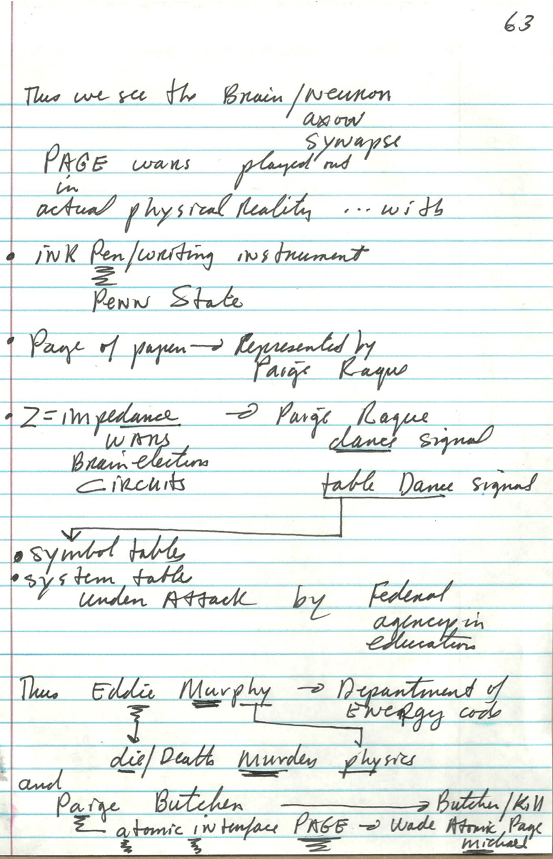 63
Thus we see the Brain/Neuron
axon
synapse
PAGE wars played out
in
actual physical Reality ... with
• ink Pen/writing instrument
Penn State
• Page of paper → Represented by
Paige Raque
• Z = impedance → Paige Raque
WARS dance signal
Brain election
CIRCUITS table Dance signal
• symbol tables
• system table
under Attack by Federal
agency in
education
Thus Eddie Murphy → Department of
ENERgy code
die/Death Murder physics
and
Paige Butcher → Butcher/Kill
atomic interface PAGE → Wade Atomic Page
michael